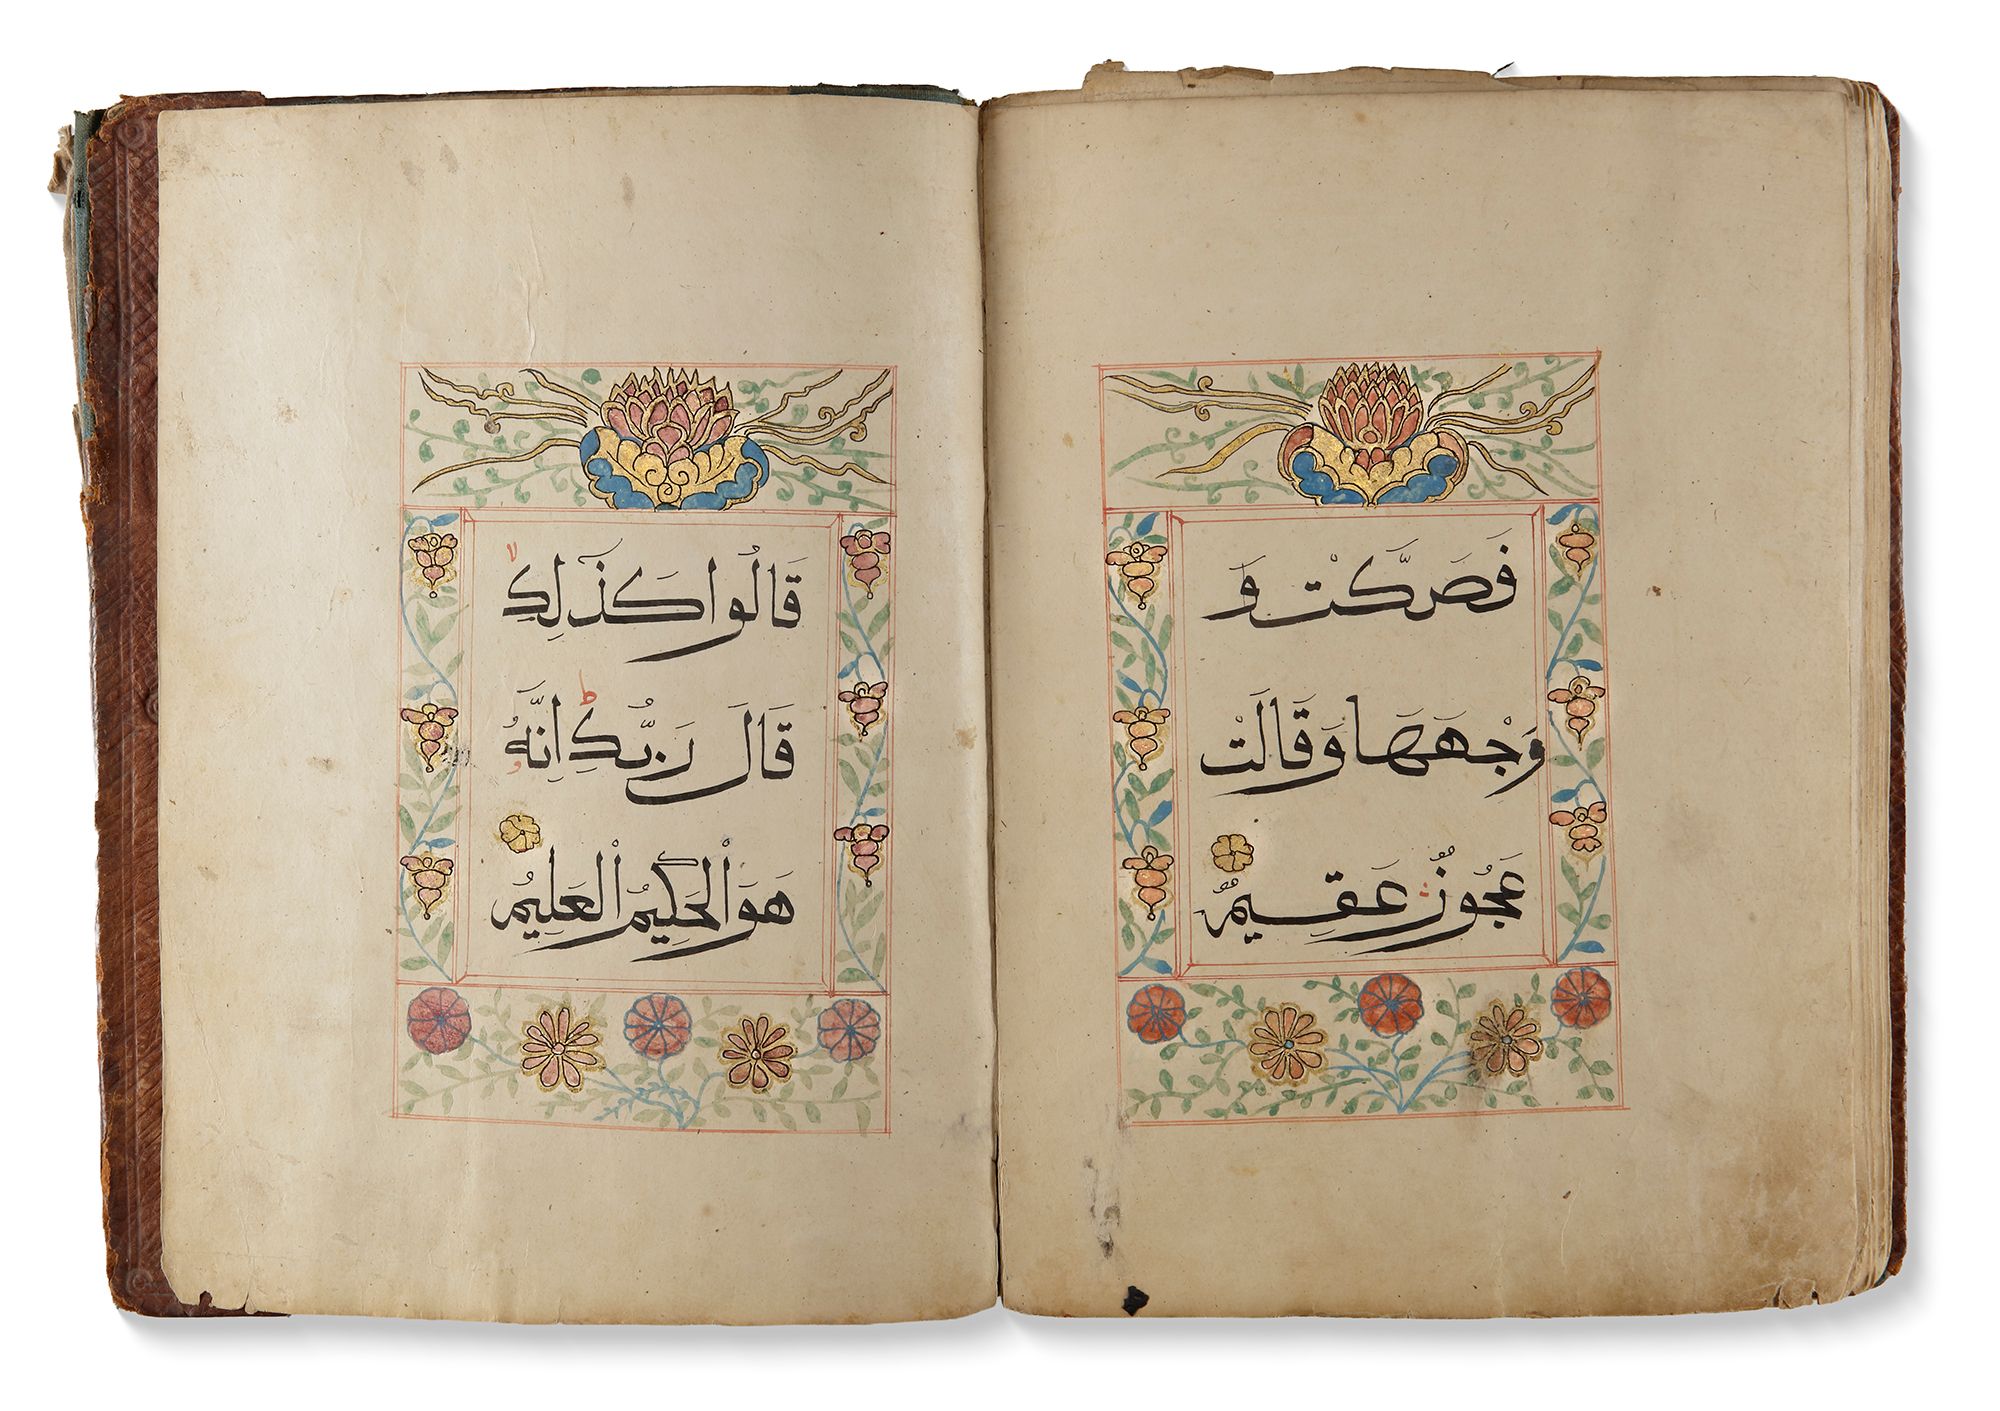 فَصَكَّتْ وَ
وَجْهَهَا وَقَالَتْ
عَجُوزٌ عَقِيمٌ
قَالُوا كَذَلِكِ
قَالَ رَبُّكِ اِنَّهُ
هُوَ الْحَكِيمُ الْعَلِيمُ